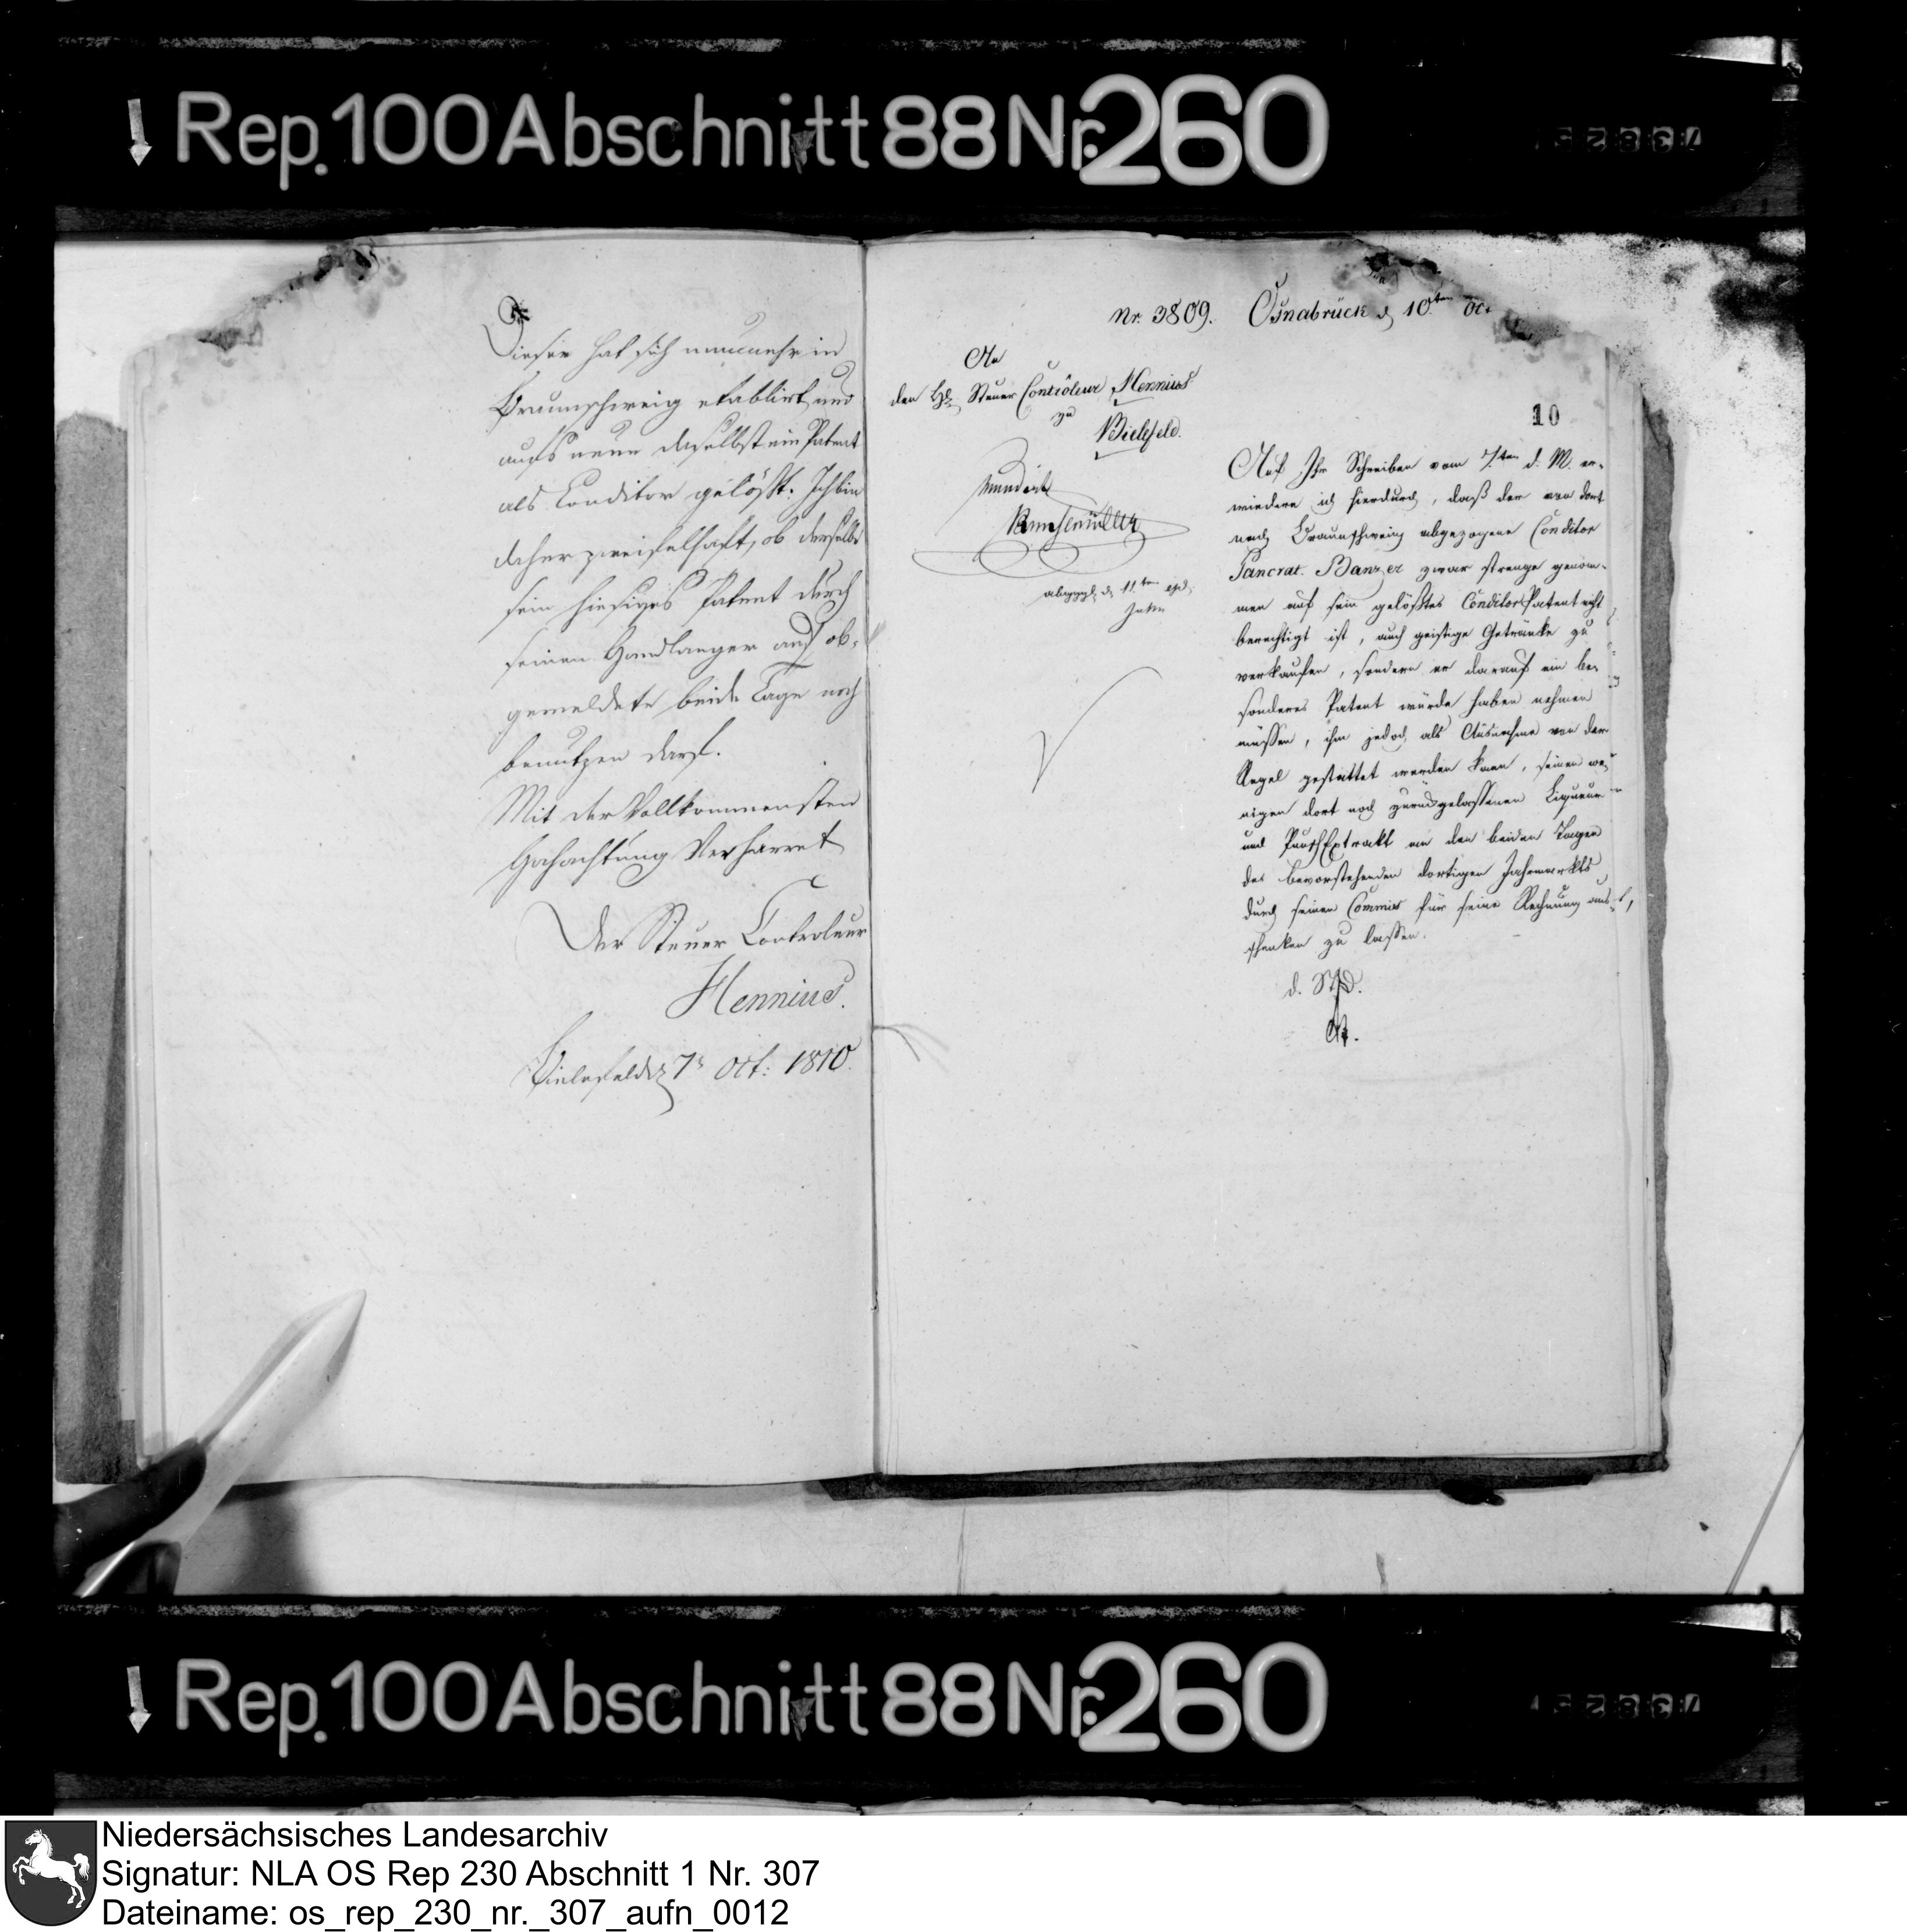 Rep. 100 Abschnitt 88 Nr. 260
73825
Dieser hat sich nunmehr in
Braunschweig etablirt und
aufs neue daselbst ein Patent
als Conditor gelößt. Ich bin
daher zweifelhaft, ob derselbe
sein hiesiges Patent durch
seinen Handlanger auf ob-
gemeldete beide Tage noch
benutzen darf.
Mit der Vollkommensten
Hochachtung Verharret
Der Steuer Controleur
Hennius.
Bielefeld d 7t Oct: 1810.
Nr. 3809. Osnabrück d 10ten Oct
An
den H. Steuer Contrôleur Hennius
zu
Bielefeld.
mundirt
abgggl. d. 11ten
10
Auf Ihr Schreiben vom 7ten d. M. er-
wiedere ich hierdurch, daß der von dort
nach Braunschweig abgezogene Conditor
Pancrat. Banzer zwar strenge genom-
men auf sein gelößtes Conditor Patent nicht
berechtigt ist, auch geistige Getränke zu
verkaufen, sondern er darauf ein be-
sonderes Patent würde haben nehmen
müssen, ihm jedoch als Ausnahme von der
Regel gestattet werden kann, seinen we-
nigen dort noch zurückgelassenen Liqueur
und Punsch Extrakt an den beiden Tagen
des bevorstehenden dortigen Jahrmarkts
durch seinen Commis für seine Rechnung aus-
schenken zu lassen.
d. StD.
Rep. 100 Abschnitt 88 Nr. 260
73825
Niedersächsisches Landesarchiv
Signatur: NLA OS Rep 230 Abschnitt 1 Nr. 307
Dateiname: os_rep_230_nr._307_aufn_0012